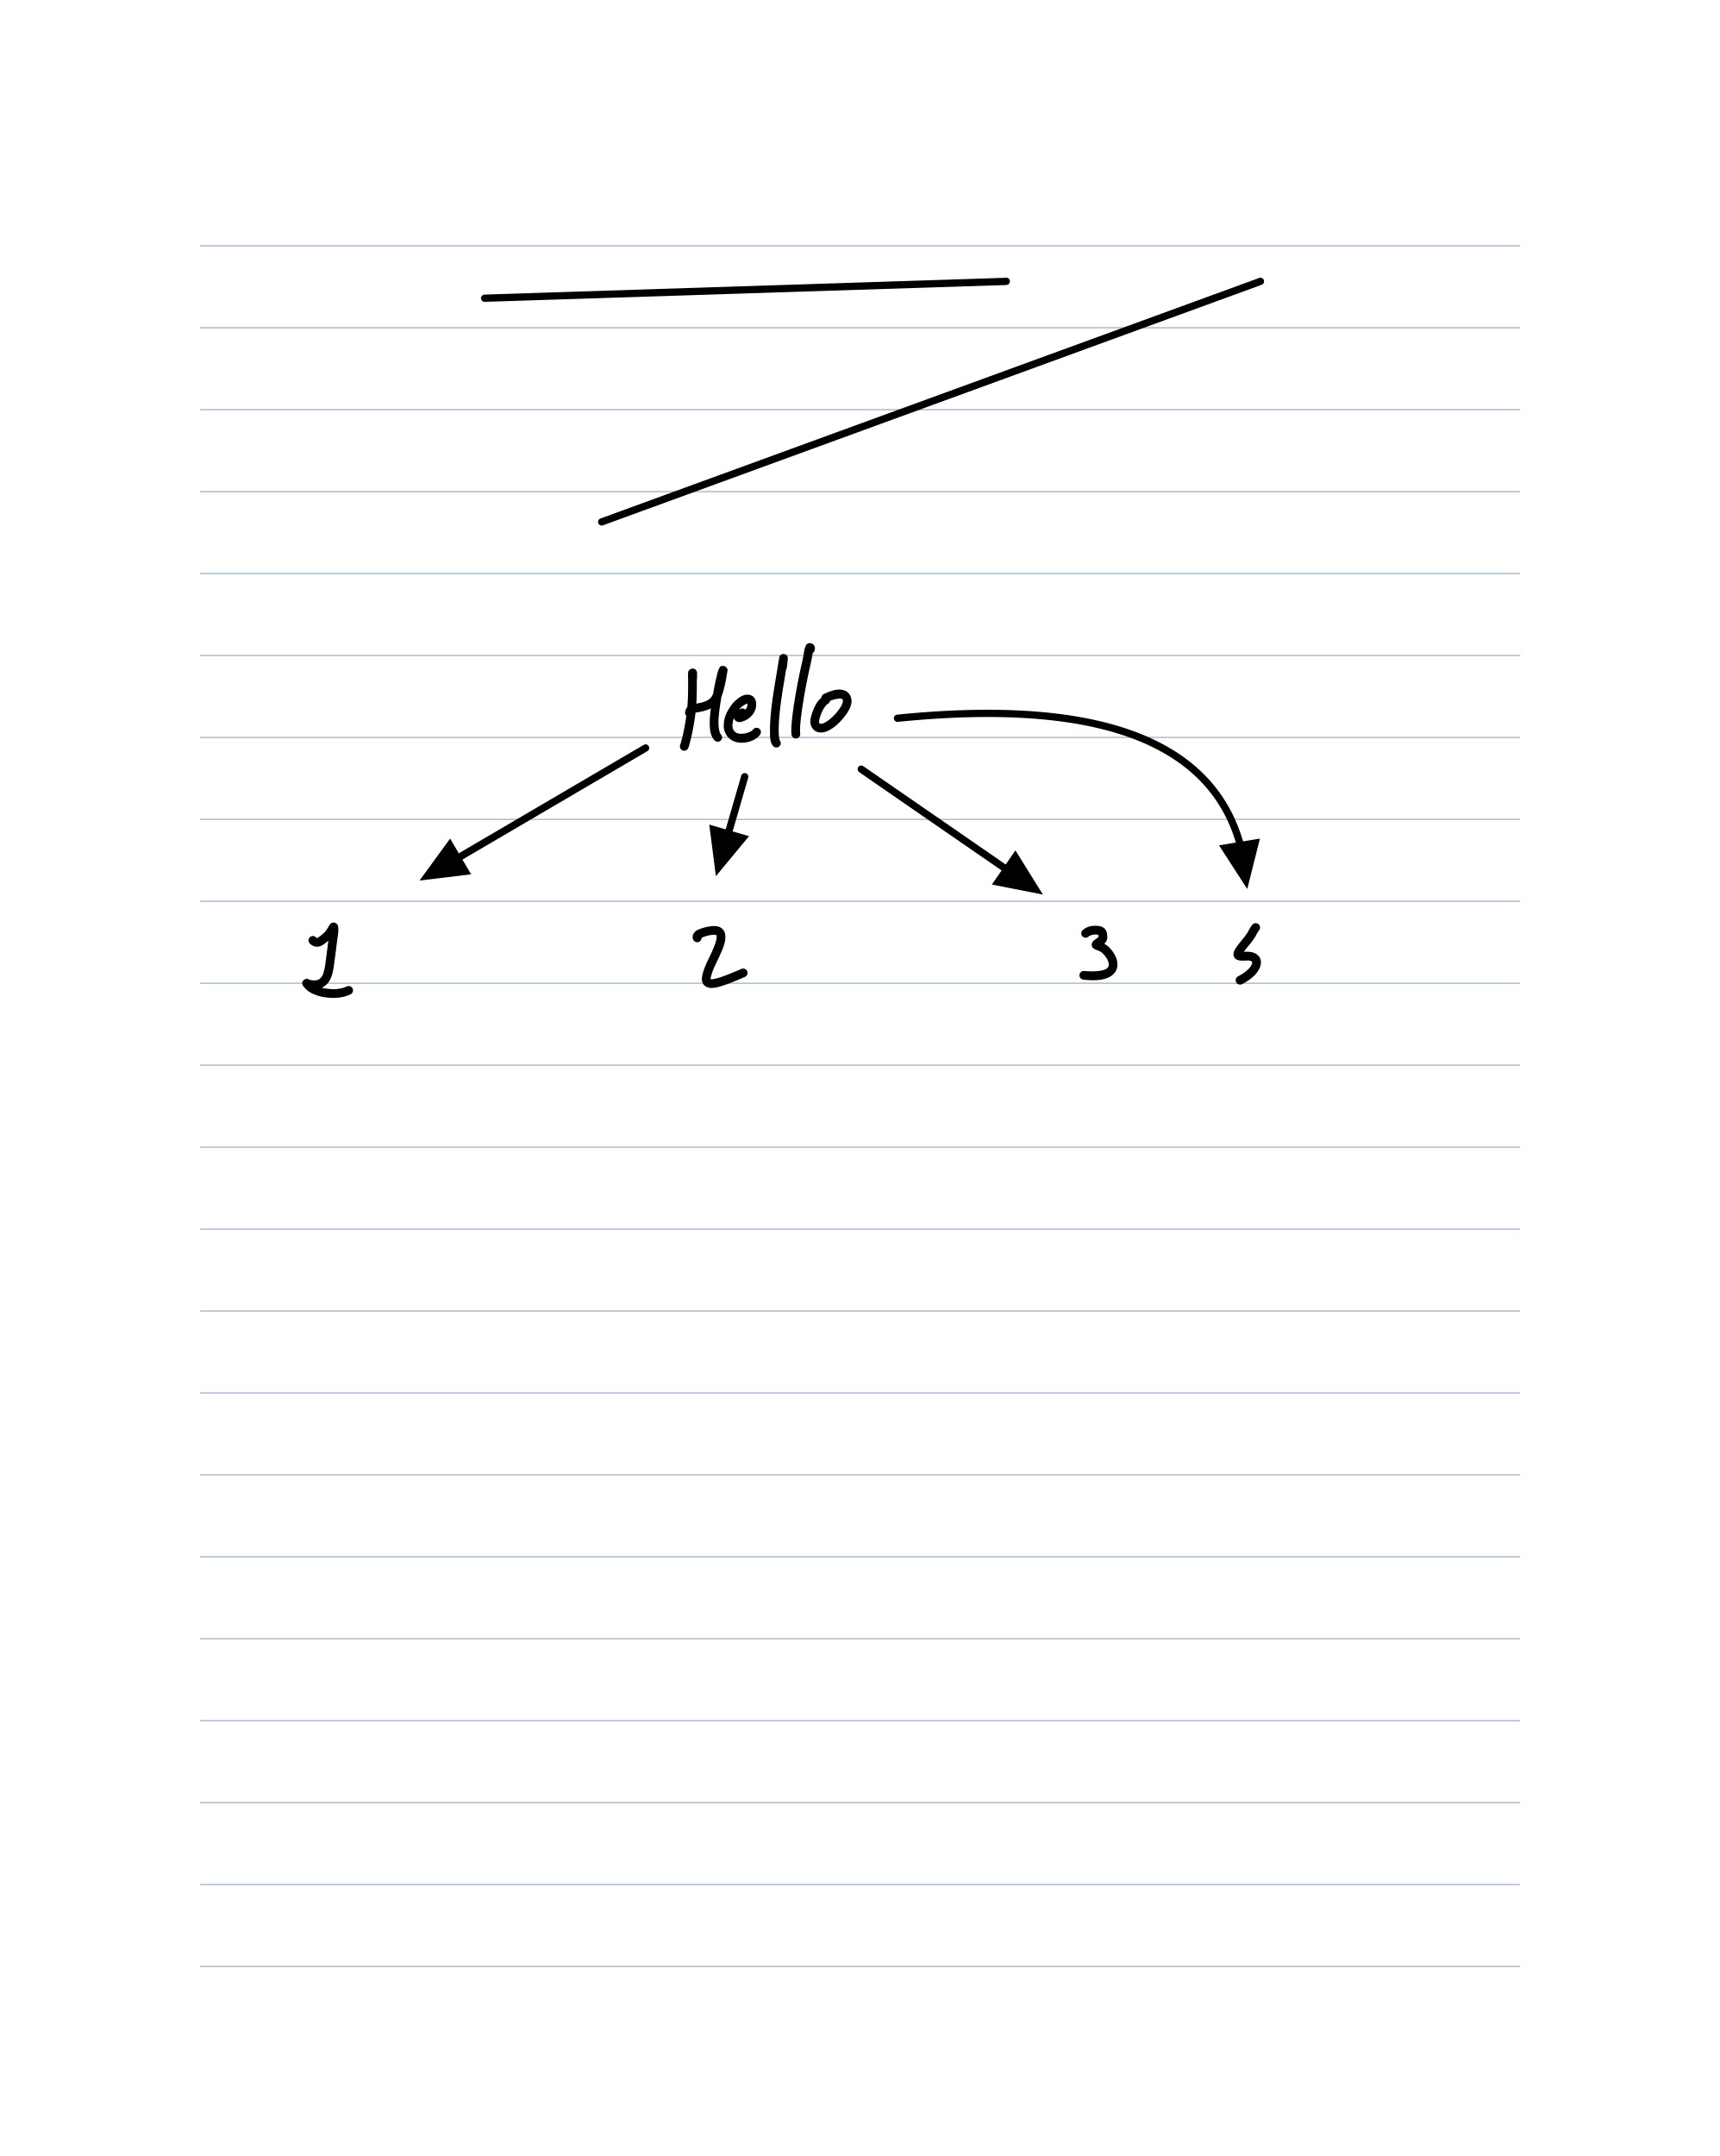 Hello
1 2 3 5